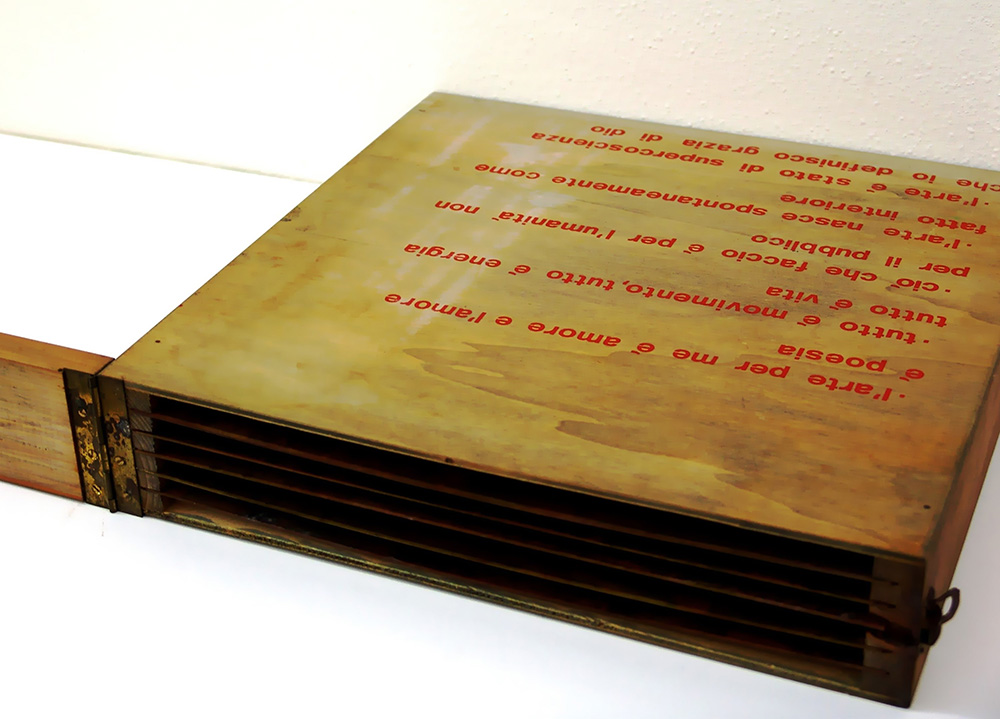 · l'arte per me é amore e l'amore
é poesia
· tutto é movimento, tutto é energia
tutto é vita
· ció che faccio é per l'umanitá non
per il pubblico
· l'arte nasce spontaneamente come
fatto interiore
· l'arte é stato di supercoscienza
che io definisco grazia di dio